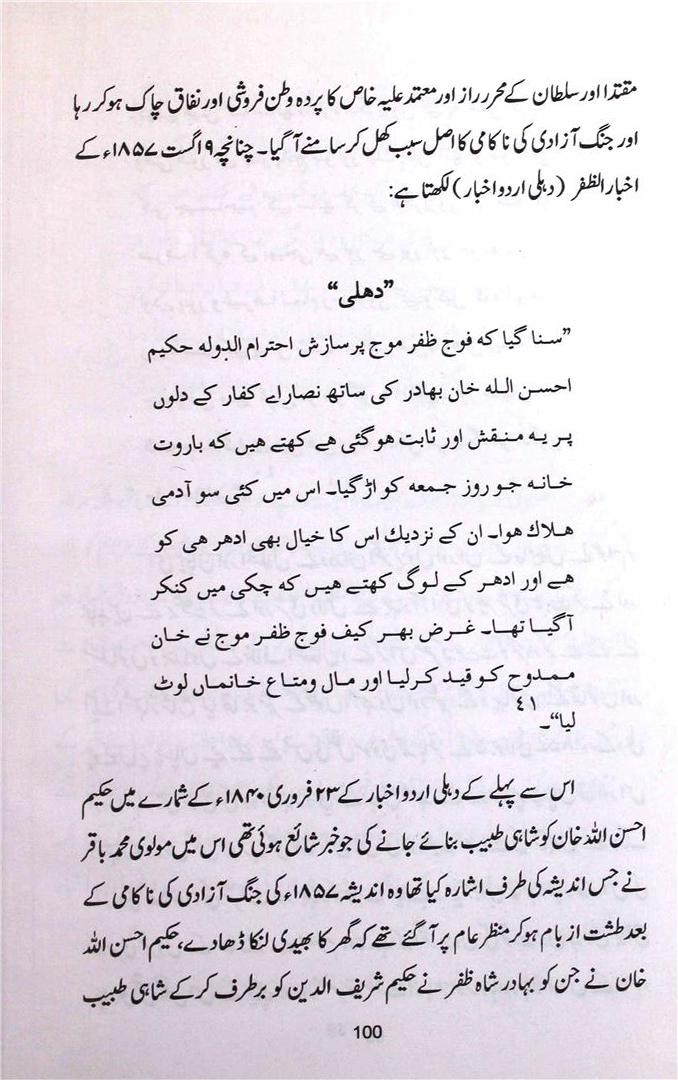 مقتدا اور سلطان کے محرر راز اور معتمد علیہ خاص کا پردہ وطن فروشی اور نفاق چاک ہوکر رہا
اور جنگ آزادی کی ناکامی کا اصل سبب کھل کر سامنے آگیا۔ چنانچہ ۹؍اگست ۱۸۵۷ء کے
اخبار الظفر (دہلی اردو اخبار) لکھتا ہے:
”دھلی“
”سنا گیا کہ فوج ظفر موج پر سازش احترام الدولہ حکیم
احسن اللہ خان بھادر کی ساتھ نصاراے کفار کے دلوں
پر یہ منقش اور ثابت ھوگئی ھے کھتے ھیں کہ باروت
خانہ جو روز جمعہ کو اڑ گیا۔ اس میں کئی سو آدمی
ھلاك ھوا۔ ان کے نزدیك اس کا خیال بھی ادھر ھی کو
ھے اور ادھر کے لوگ کھتے ھیں کہ چکی میں کنکر
آگیا تھا۔ غرض بھر کیف فوج ظفر موج نے خان
ممدوح کو قید کرلیا اور مال ومتاع خانماں لوٹ
لیا“۔ ٤١
اس سے پہلے کے دہلی اردو اخبار کے ۲۳ فروری ۱۸۴۰ء کے شمارے میں حکیم
احسن اللہ خان کو شاہی طبیب بنائے جانے کی جو خبر شائع ہوئی تھی اس میں مولوی محمد باقر
نے جس اندیشہ کی طرف اشارہ کیا تھا وہ اندیشہ ۱۸۵۷ء کی جنگ آزادی کی ناکامی کے
بعد طشت از بام ہوکر منظر عام پر آگئے تھے کہ گھر کا بھیدی لنکا ڈھادے، حکیم احسن اللہ
خان نے جن کو بہادر شاہ ظفر نے حکیم شریف الدین کو برطرف کرکے شاہی طبیب
100